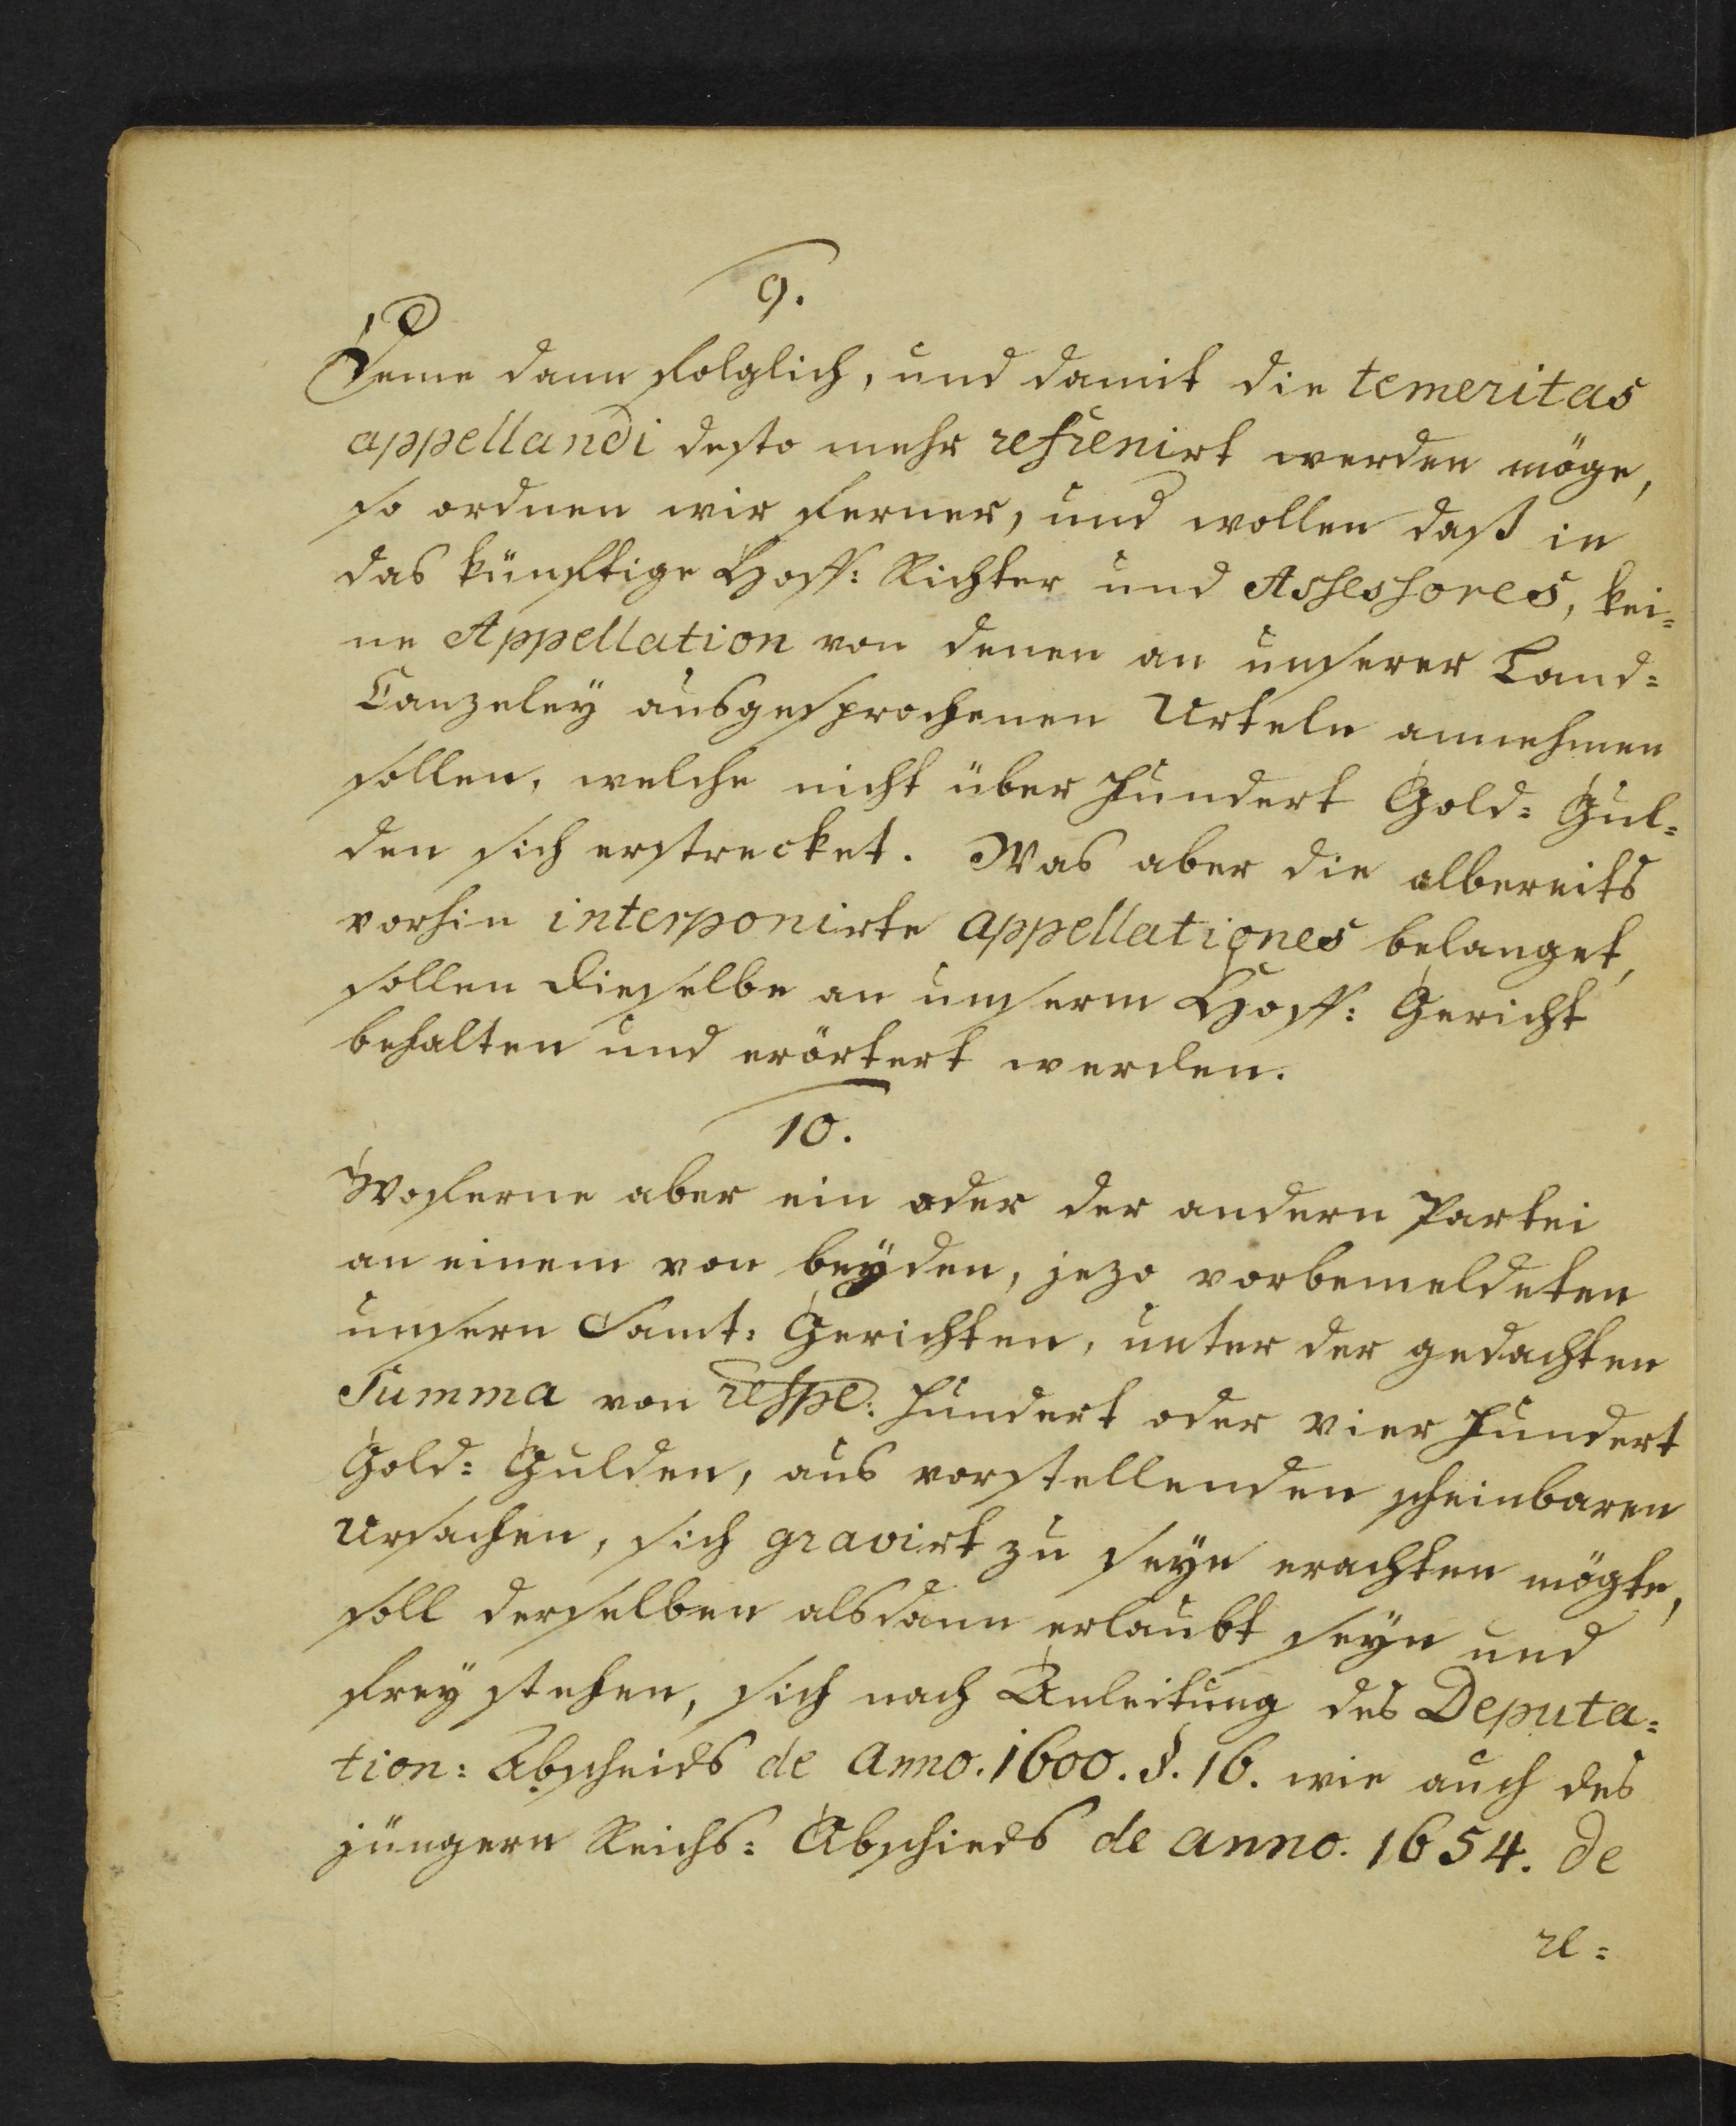 9.
Deme dann folglich, und damit die temeritas
appellandi desto mehr refrenirt werden möge,
so ordnen wir ferner, und wollen daß in
das künftige Hoff: Richter und Assessores, kei=
ne Appellation von denen an unserer Land=
Canzeley ausgesprochenen Urteln annehmen
sollen, welche nicht über hundert Gold= Gul=
den sich erstrecket. Was aber die albereits
vorhin interponirte appellationes belanget,
sollen dieselbe an unserm Hoff: Gericht
behalten und erörtert werden.
10.
Woferne aber ein oder der andern Partei
an einem von beÿden, jezo vorbemeldeten
unsern Samt: Gerichten, unter der gedachten
Summa von respe: hundert oder vier hundert
Gold= Gulden, aus vorstellenden scheinbaren
Ursachen, sich gravirt zu seÿn erachten mögte,
soll derselben alsdann erlaubt seÿn und
freÿ stehen, sich nach Anleitung des Deputa=
tion: Abscheids de anno. 1600. §. 16. wie auch des
jüngern Reichs: Abschieds de anno. 1654. de
re=